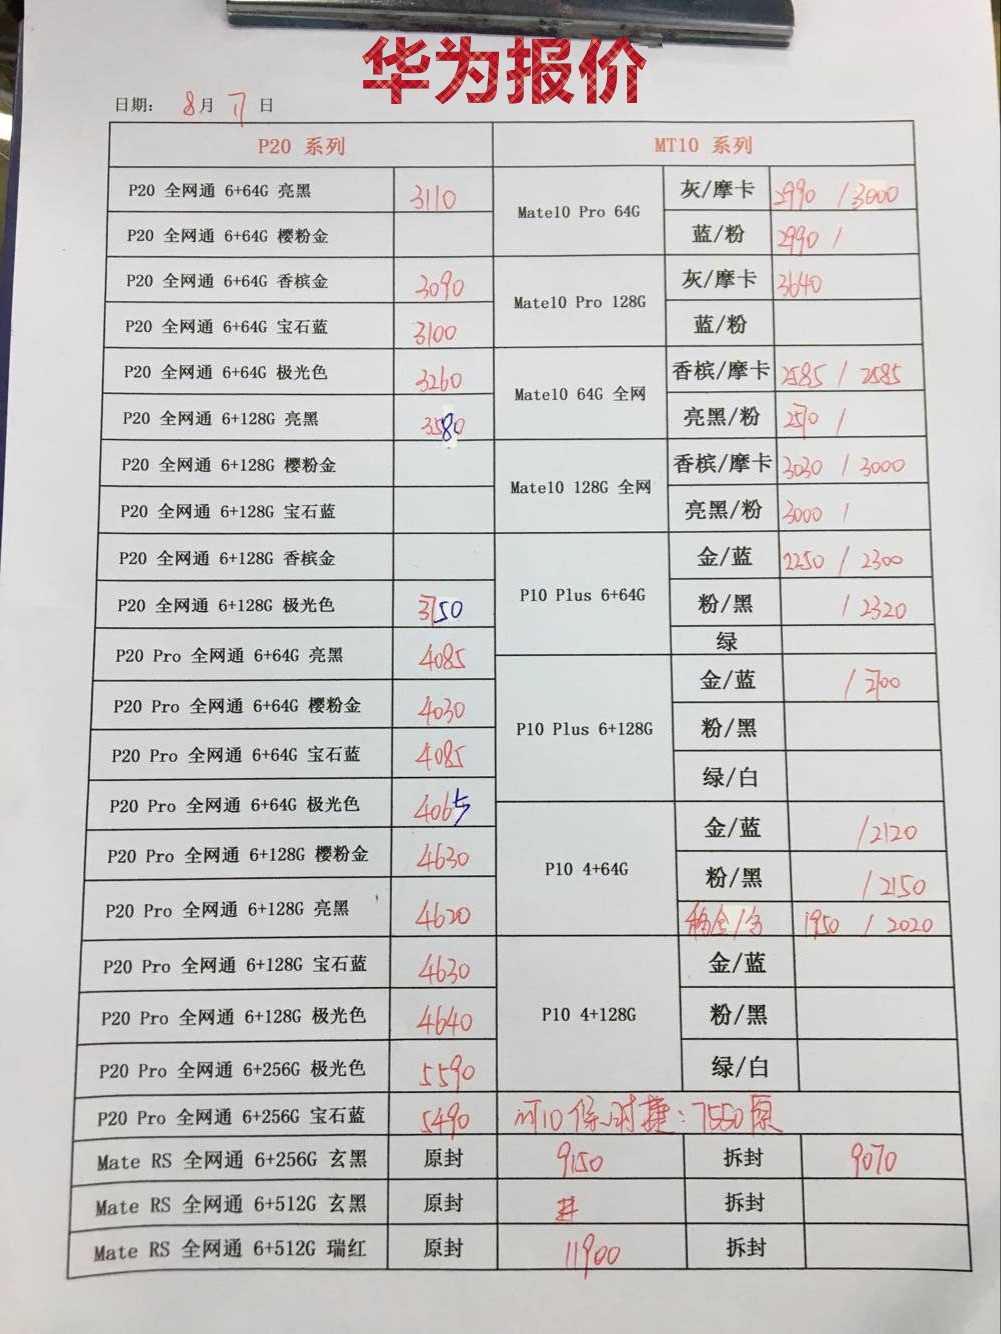 华为报价
日期: 8月 17日
P20 系列
MT10 系列
P20 全网通 6+64G 亮黑 3110
P20 全网通 6+64G 樱粉金
P20 全网通 6+64G 香槟金 3090
P20 全网通 6+64G 宝石蓝 3100
P20 全网通 6+64G 极光色 3260
P20 全网通 6+128G 亮黑 3580
P20 全网通 6+128G 樱粉金
P20 全网通 6+128G 宝石蓝
P20 全网通 6+128G 香槟金
P20 全网通 6+128G 极光色 3750
P20 Pro 全网通 6+64G 亮黑 4085
P20 Pro 全网通 6+64G 樱粉金 4030
P20 Pro 全网通 6+64G 宝石蓝 4085
P20 Pro 全网通 6+64G 极光色 4065
P20 Pro 全网通 6+128G 樱粉金 4630
P20 Pro 全网通 6+128G 亮黑 4620
P20 Pro 全网通 6+128G 宝石蓝 4630
P20 Pro 全网通 6+128G 极光色 4640
P20 Pro 全网通 6+256G 极光色 5590
P20 Pro 全网通 6+256G 宝石蓝 5490
Mate10 Pro 64G
灰/摩卡 2990 / 3000
蓝/粉 2990 /
Mate10 Pro 128G
灰/摩卡 3640
蓝/粉
Mate10 64G 全网
香槟/摩卡 2585 / 2585
亮黑/粉 /
Mate10 128G 全网
香槟/摩卡 3030 / 3000
亮黑/粉 3000 /
P10 Plus 6+64G
金/蓝 2250 / 2300
粉/黑 / 2320
绿
P10 Plus 6+128G
金/蓝 /
粉/黑
绿/白
P10 4+64G
金/蓝 / 2120
粉/黑 / 2150
1950 / 2020
P10 4+128G
金/蓝
粉/黑
绿/白
MT10 保时捷: 7550 原
Mate RS 全网通 6+256G 玄黑 原封 9150 拆封 9070
Mate RS 全网通 6+512G 玄黑 原封 拆封
Mate RS 全网通 6+512G 瑞红 原封 11900 拆封